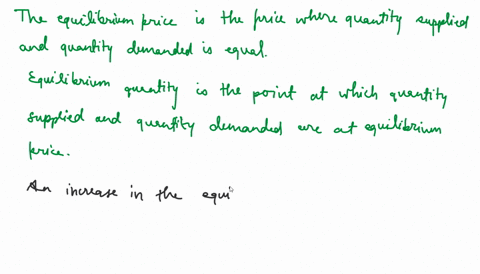 The equilibrium price is the price where quantity supplied
and quantity demanded is equal.
Equilibrium quantity is the point at which quantity
supplied and quantity demanded are at equilibrium
price.
An increase in the equi